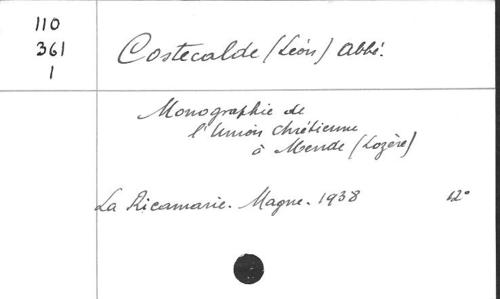 110
361
1
Costecalde (Léon) Abbé.
Monographie de
l'Union Chrétienne
à Mende (Lozère)
La Ricamarie. Magne. 1938 12°